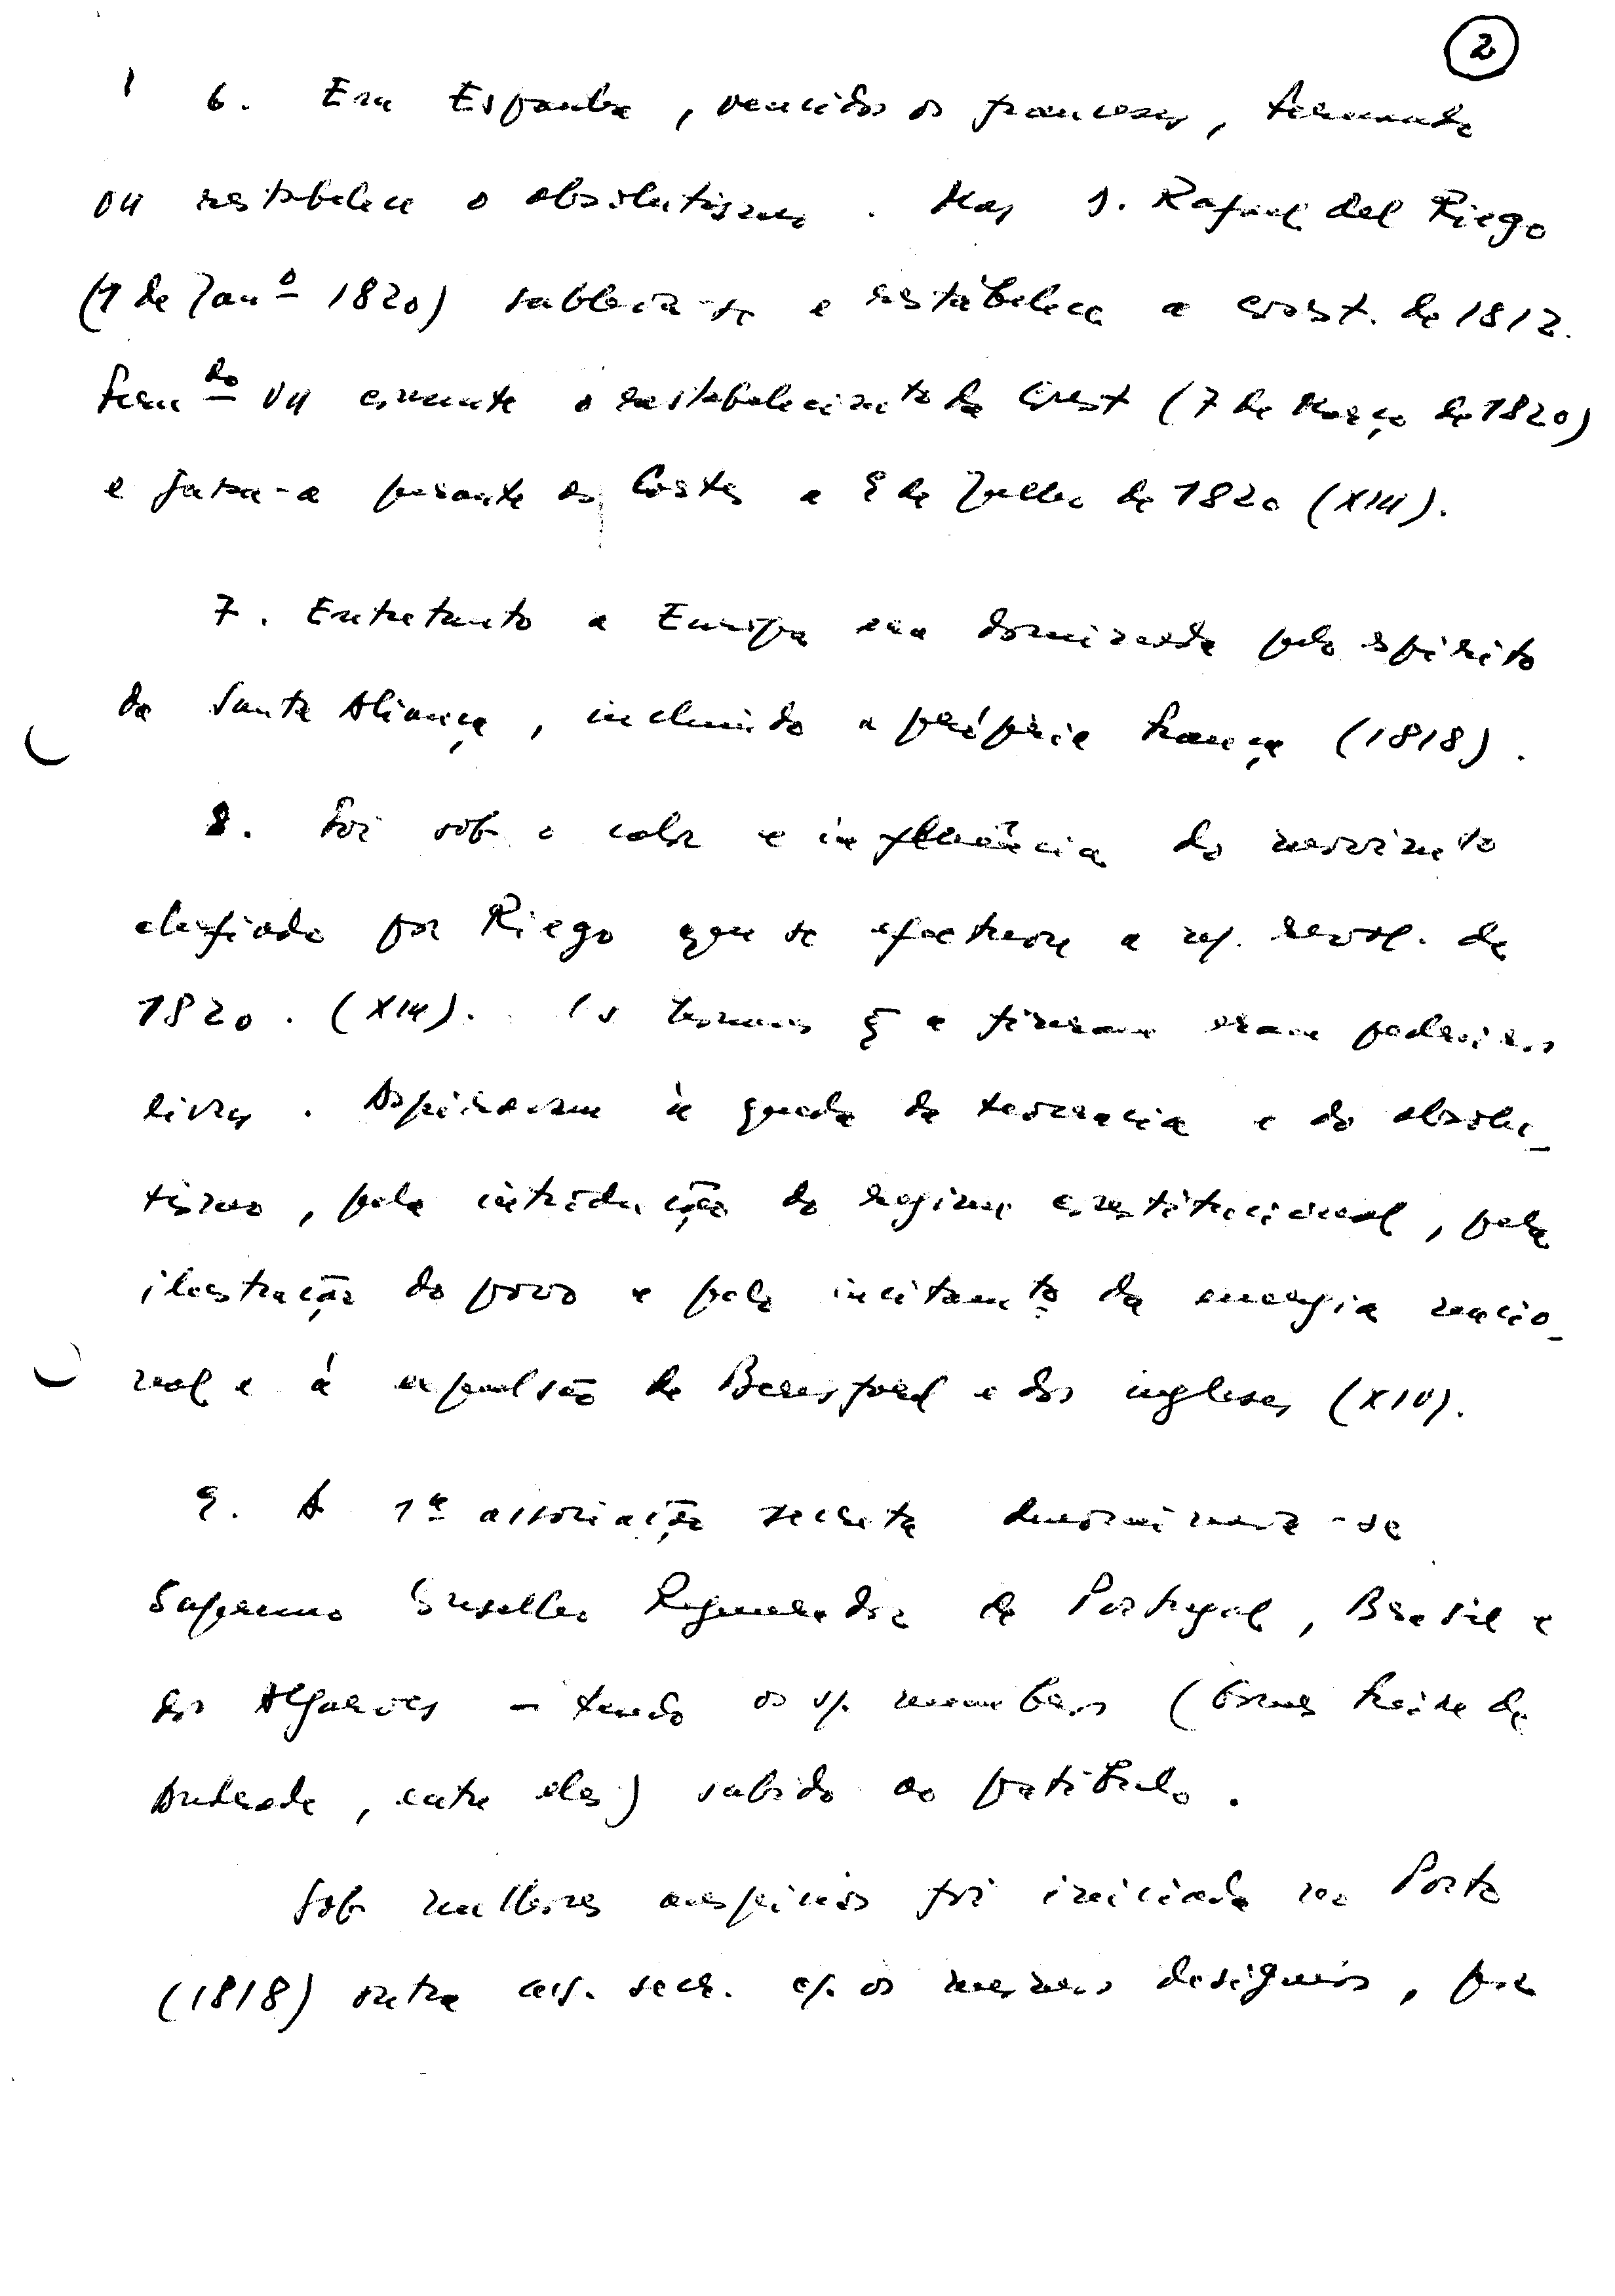 2
6. Em Espanha, vencidos os franceses, Fernando
VII restabelece o absolutismo. Mas D. Rafael del Riego
(1 de Janº 1820) subleva-se e restabelece a const. de 1812.
Ferndo VII consente o restabelecimento da Const (7 de Março de 1820)
e jura-a perante as Cortes a 9 de Julho de 1820 (XIII).
7. Entretanto a Europa era dominada pelo espírito
da Santa Aliança, incluindo a própria França (1818).
8. Foi sob o calor e influência do movimento
chefiado por Riego que se efectuou a revol. de
1820. (XIII). Os homens q a fizeram eram pedreiros
livres. Aspiravam à queda da teocracia e do absolu-
tismo, pela introdução do regime constitucional, pela
ilustração do povo e pelo incitamto da energia nacio-
nal e à expulsão de Beresford e dos ingleses (XIV).
9. A 1ª associação secreta denominava-se
Supremo Conselho Regenerador de Portugal, Brasil e
dos Algarves - tendo os membros (Gomes Freire de
Andrade, entre eles) subido ao patíbulo.
Sob melhores auspícios foi iniciada no Porto
(1818) outra ass. secr. c/. os mesmos desígnios, por